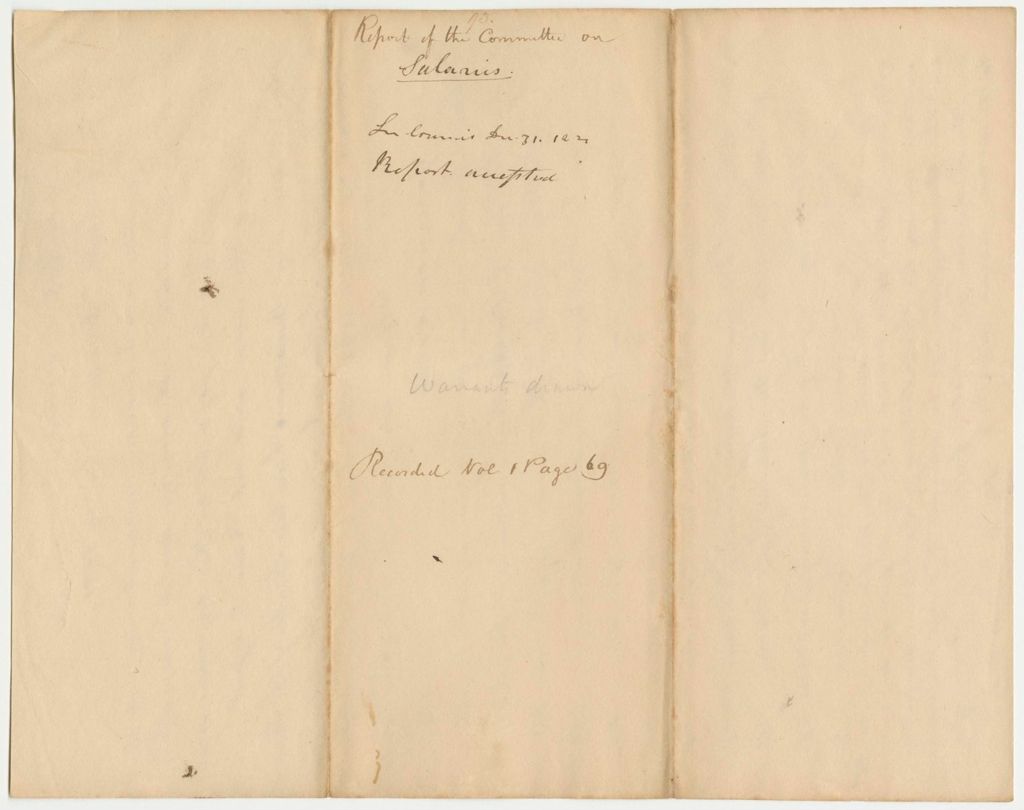 Report of the Committee on
Salaries.
In Council Dec. 31.
Report accepted
Warrants drawn
Recorded Vol 1 Page 69